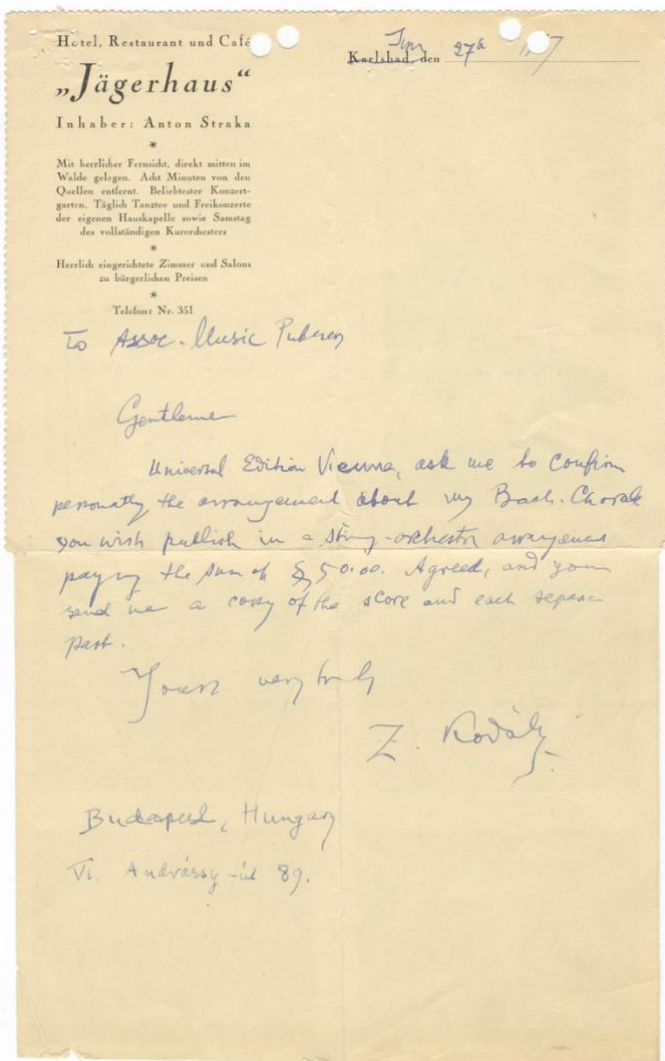 Hotel, Restaurant und Café
„Jägerhaus“
Inhaber: Anton Straka
*
Mit herrlicher Fernsicht, direkt mitten im
Walde gelegen. Acht Minuten von den
Quellen entfernt. Beliebtester Konzert-
garten. Täglich Tanztee und Freikonzerte
der eigenen Hauskapelle sowie Samstag
des vollständigen Kurorchesters
*
Herrlich eingerichtete Zimmer und Salons
zu bürgerlichen Preisen
*
Telefon: Nr. 351
Karlsbad, den 27th
To Assoc. Music
Gentlemen
Universal Edition Vienna, ask me to confirm
personally the arrangement about my Bach-Chorale
you wish publish in a string-orchestra arrangement
paying the sum of $ 50.00. Agreed, and you
send me a copy of the score and each separate
part.
Yours very truly
Z. Kodály
Budapest, Hungary
VI. Andrássy-út 89.